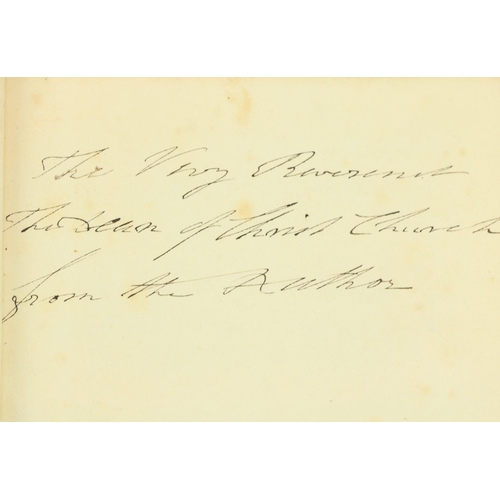 The Very Reverend
The Dean of Christ Church
from the Author